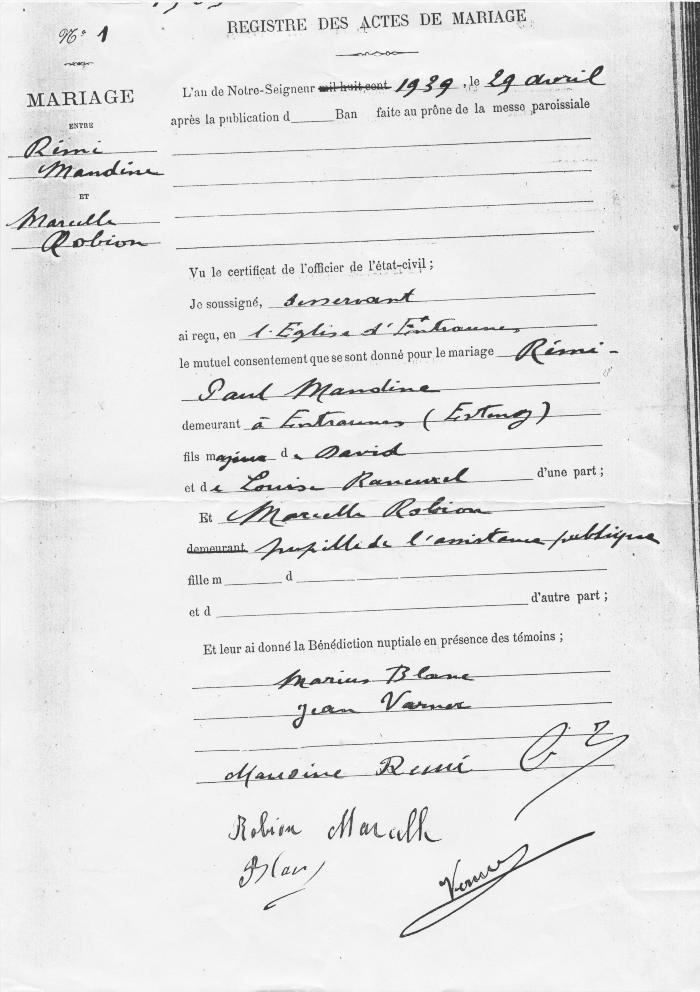 REGISTRE DES ACTES DE MARIAGE
N° 1
MARIAGE
ENTRE
Rémi
Mandine
ET
Marcelle
Robion
L'an de Notre-Seigneur mil huit cent 1939, le 29 avril
après la publication d Ban faite au prône de la messe paroissiale
Vu le certificat de l'officier de l'état-civil ;
Je soussigné, desservant
ai reçu, en l'Eglise d'Entraunes
le mutuel consentement que se sont donné pour le mariage Rémi-
Paul Mandine
demeurant à Entraunes (Esteng)
fils majeur de David
et de Louise Rancurel d'une part ;
Et Marcelle Robion
demeurant pupille de l'assistance publique
fille m d
et d d'autre part ;
Et leur ai donné la Bénédiction nuptiale en présence des témoins ;
Marius Blanc
Jean Varner
Mandine Remi
Robion Marcelle
Blanc